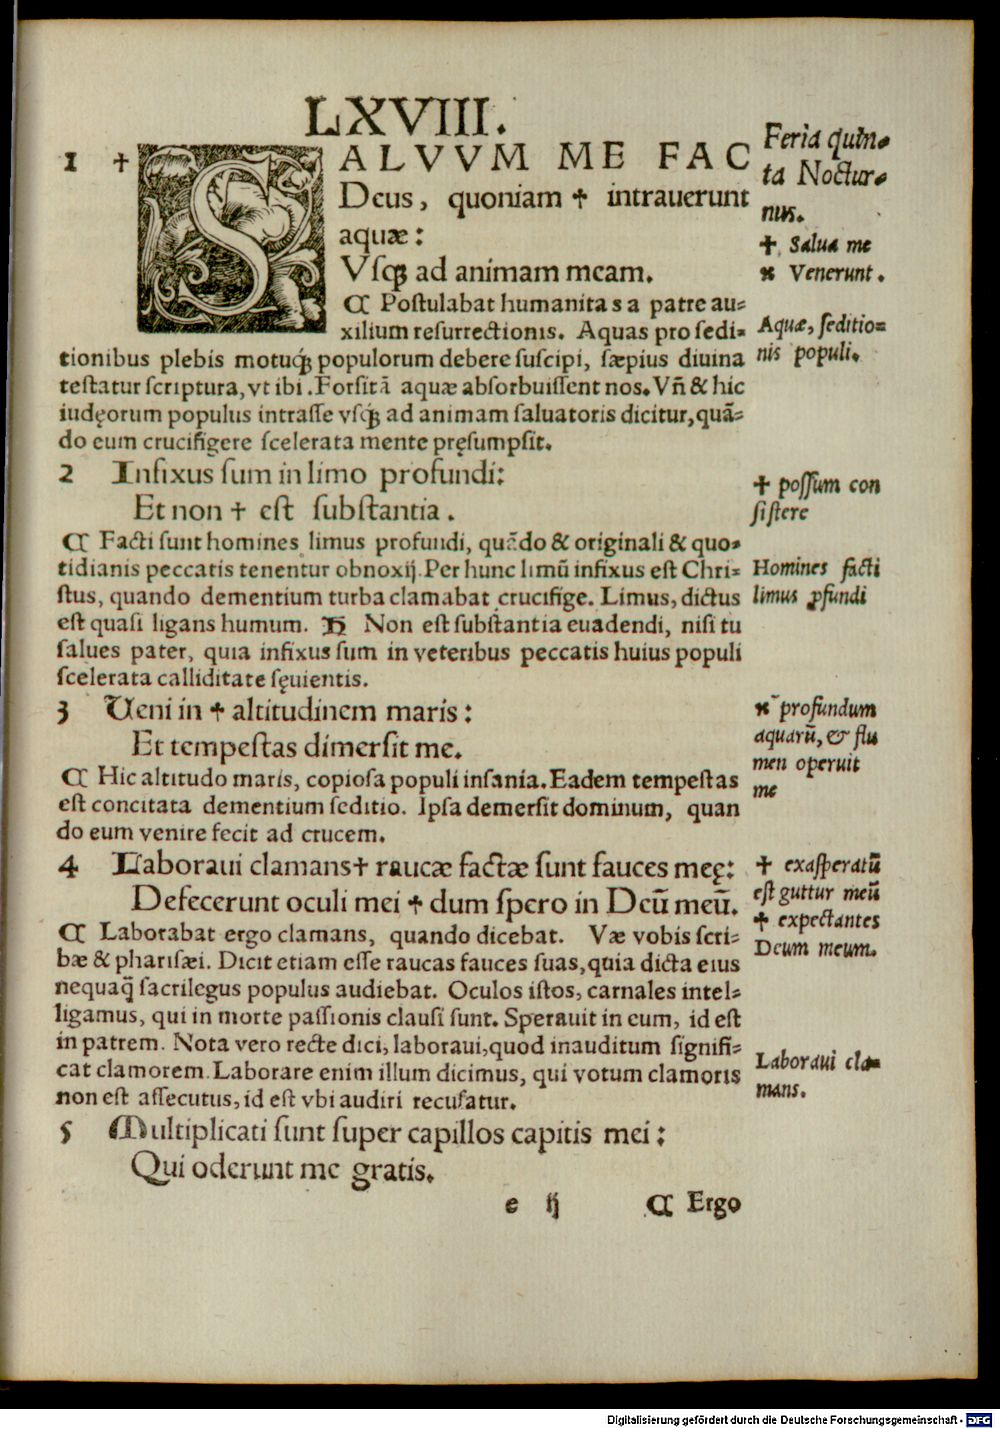 LXVIII.
1 ✝ SALVVM ME FAC
Deus, quoniam ✝ intrauerunt
aquæ:
Vſqꝫ ad animam meam.
¶ Poſtulabat humanitas a patre au⸗
xilium reſurrectionis. Aquas pro ſedi⸗
tionibus plebis motuqꝫ populorum debere ſuſcipi, ſæpius diuina
teſtatur ſcriptura, vt ibi. Forſitā aquæ abſorbuiſſent nos. Vn̄ & hic
iudęorum populus intraſſe vſqꝫ ad animam ſaluatoris dicitur, quā⸗
do eum crucifigere ſcelerata mente pręſumpſit.
2 Infixus ſum in limo profundi:
Et non ✝ eſt ſubſtantia.
¶ Facti ſunt homines limus profundi, quādo & originali & quo⸗
tidianis peccatis tenentur obnoxij. Per hunc limū infixus eſt Chri⸗
ſtus, quando dementium turba clamabat crucifige. Limus, dictus
eſt quaſi ligans humum. Non eſt ſubſtantia euadendi, niſi tu
ſalues pater, quia infixus ſum in veteribus peccatis huius populi
ſcelerata calliditate ſęuientis.
3 Veni in ✝ altitudinem maris:
Et tempeſtas dimerſit me.
¶ Hic altitudo maris, copioſa populi inſania. Eadem tempeſtas
eſt concitata dementium ſeditio. Ipſa demerſit dominum, quan
do eum venire fecit ad crucem.
4 Laboraui clamans ✝ raucæ factæ ſunt fauces meę:
Defecerunt oculi mei ✝ dum ſpero in Deū meū.
¶ Laborabat ergo clamans, quando dicebat. Væ vobis ſcri⸗
bæ & phariſæi. Dicit etiam eſſe raucas fauces ſuas, quia dicta eius
nequaq̄ ſacrilegus populus audiebat. Oculos iſtos, carnales intel⸗
ligamus, qui in morte paſſionis clauſi ſunt. Sperauit in eum, id eſt
in patrem. Nota vero recte dici, laboraui, quod inauditum ſignifi⸗
cat clamorem. Laborare enim illum dicimus, qui votum clamoris
non eſt aſſecutus, id eſt vbi audiri recuſatur.
5 Multiplicati ſunt ſuper capillos capitis mei:
Qui oderunt me gratis.
e ij ¶ Ergo
Feria quin⸗
ta Noctur⸗
nus.
✝ Salua me
Venerunt.
Aquæ, ſeditio⸗
nis populi.
✝ poſſum con
ſiſtere
Homines facti
limus ꝓfundi
profundum
aquarū, & flu
men operuit
me
✝ exaſperatū
eſt guttur meū
✝ expectantes
Deum meum.
Laboraui cla⸗
mans.
Digitalisierung gefördert durch die Deutsche Forschungsgemeinschaft - DFG